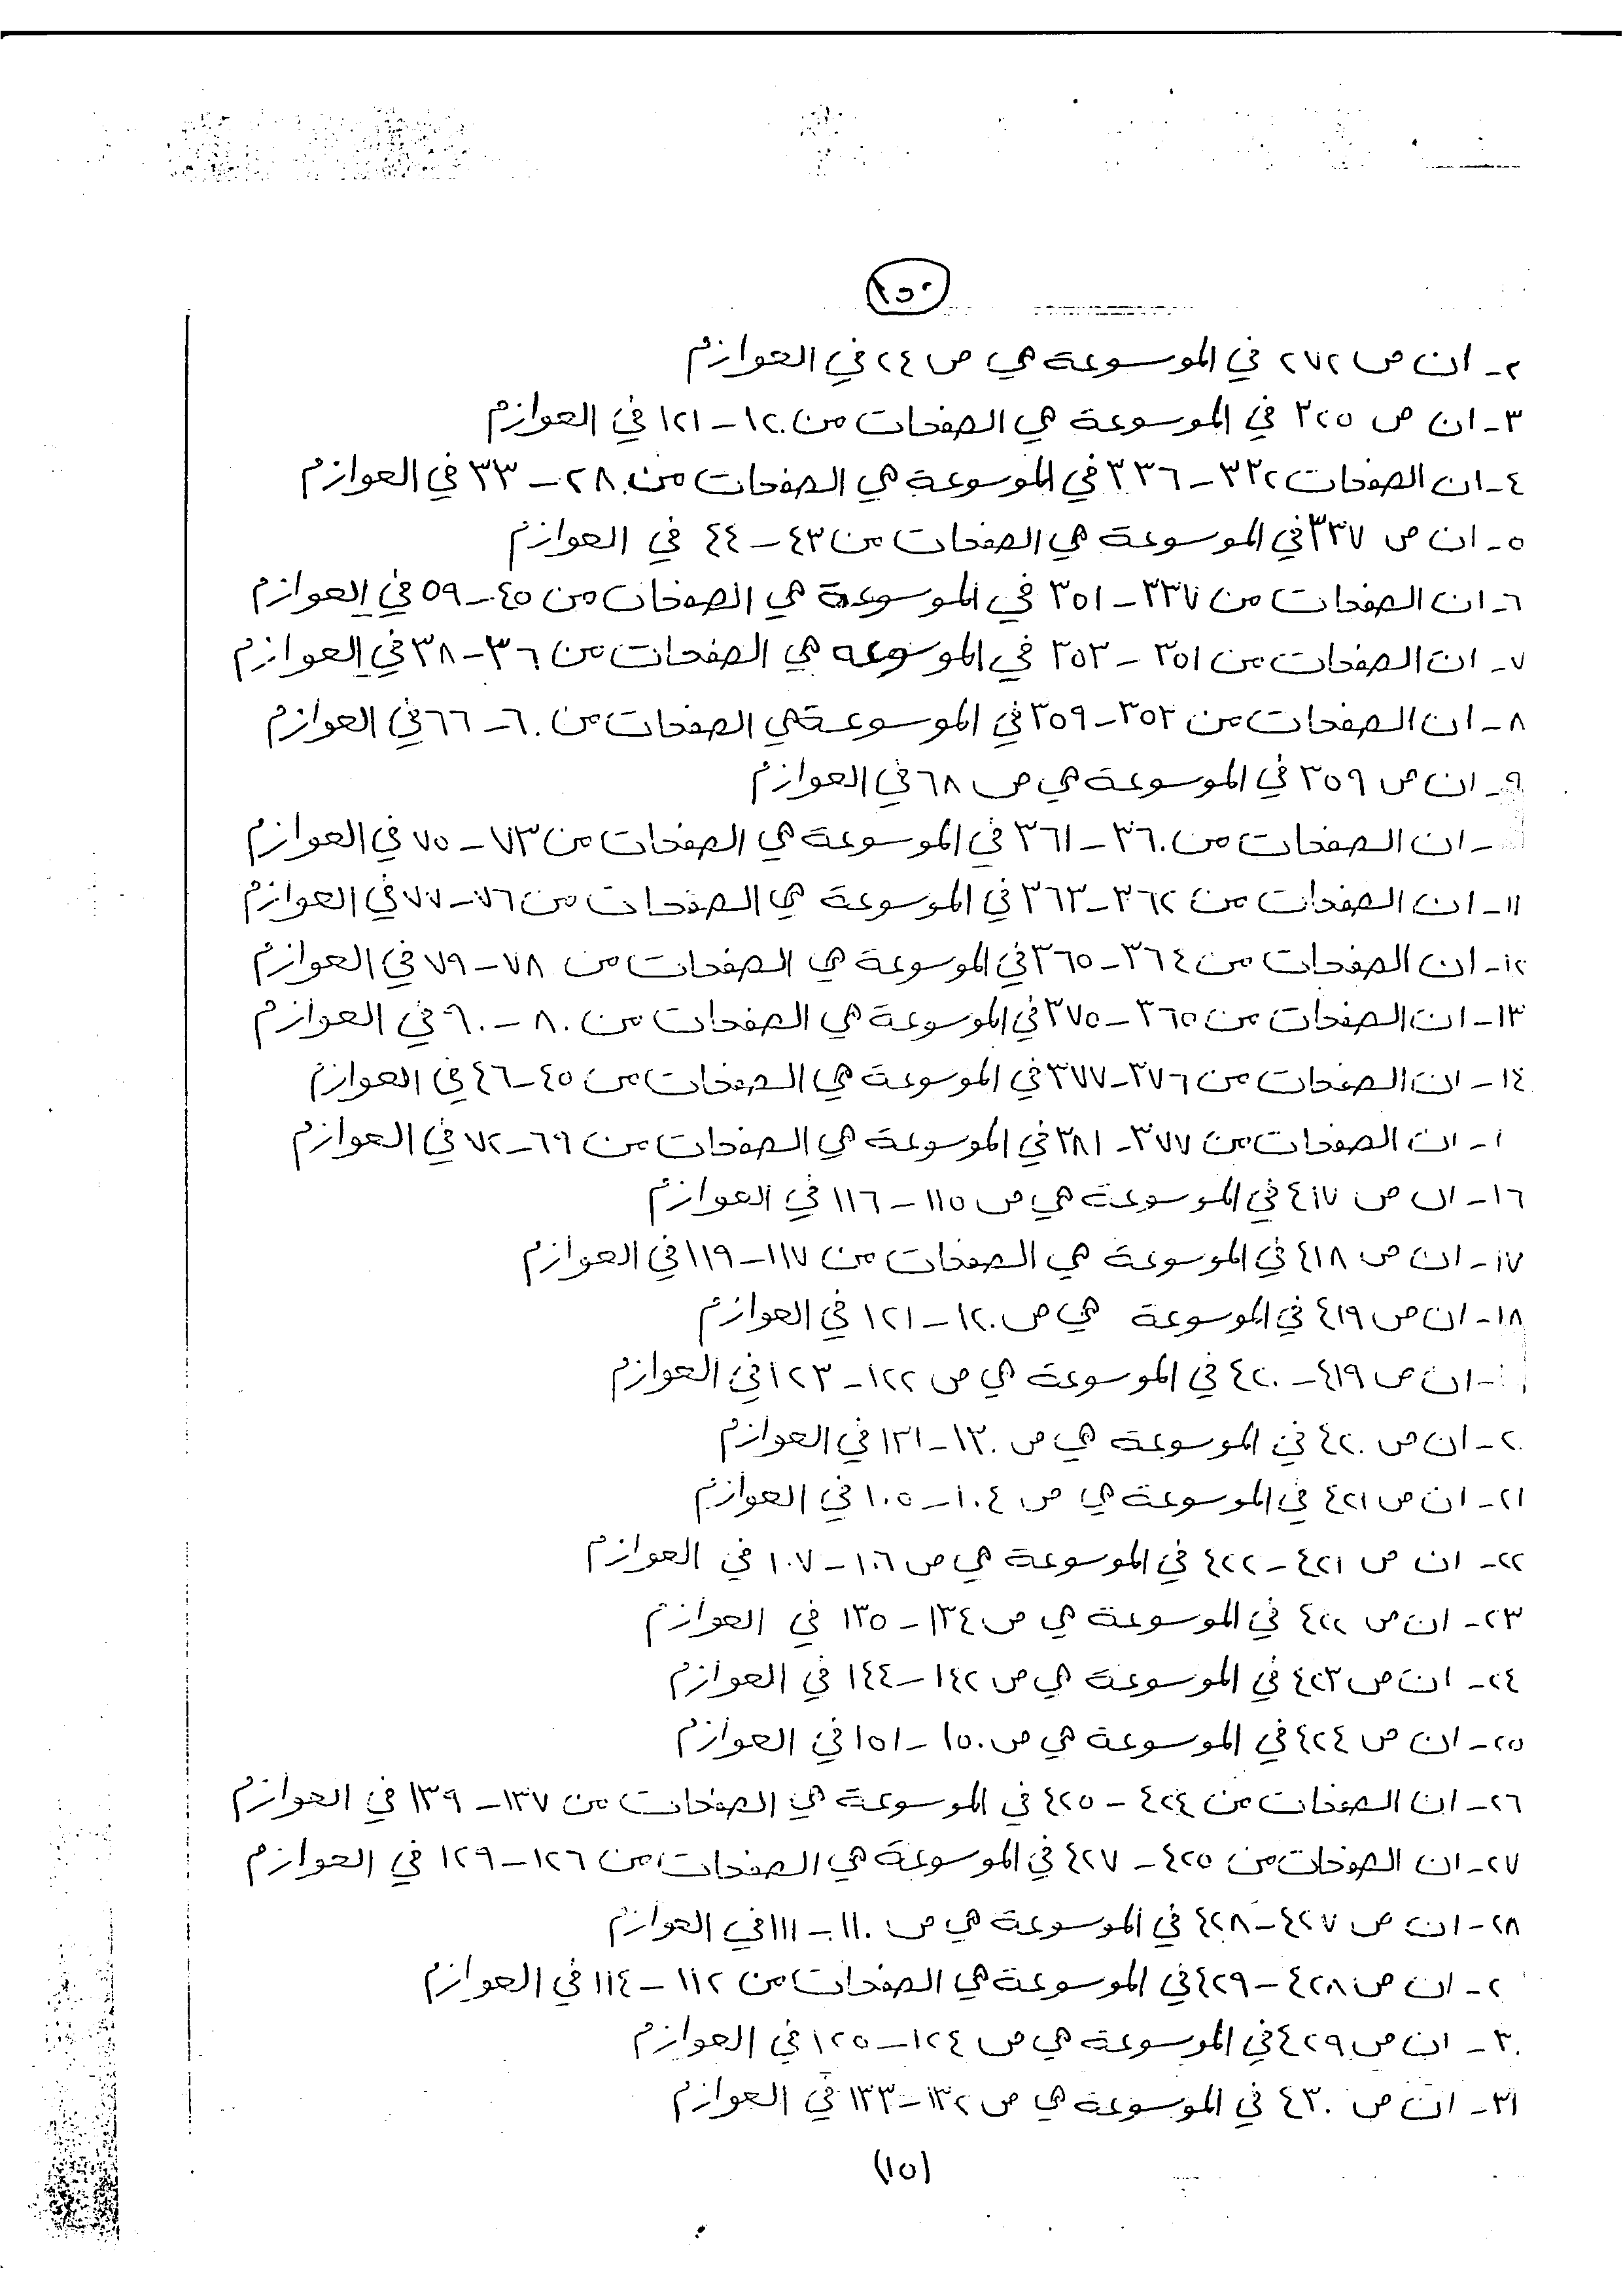 ٢٥٠
٢- ان ص ٢٧٢ في الموسوعة هي ص ٢٤ في العوازم
٣- ان ص ٣٢٥ في الموسوعة هي الصفحات من ١٢٠-١٢١ في العوازم
٤- ان الصفحات ٣٣٢-٣٣٦ في الموسوعة هي الصفحات من ٢٨-٣٣ في العوازم
٥- ان ص ٣٣٧ في الموسوعة هي الصفحات من ٤٣-٤٤ في العوازم
٦- ان الصفحات من ٣٣٧-٣٥١ في الموسوعة هي الصفحات من ٤٥-٥٩ في العوازم
٧- ان الصفحات من ٣٥١-٣٥٣ في الموسوعه هي الصفحات من ٣٦-٣٨ في العوازم
٨- ان الصفحات من ٣٥٣-٣٥٩ في الموسوعة هي الصفحات من ٦٠-٦٦ في العوازم
٩- ان ص ٣٥٩ في الموسوعة هي ص ٦٨ في العوازم
- ان الصفحات من ٣٦٠-٣٦١ في الموسوعة هي الصفحات من ٧٣-٧٥ في العوازم
١١- ان الصفحات من ٣٦٢-٣٦٣ في الموسوعة هي الصفحات من ٧٦-٧٧ في العوازم
١٢- ان الصفحات من ٣٦٤-٣٦٥ في الموسوعة هي الصفحات من ٧٨-٧٩ في العوازم
١٣- ان الصفحات من ٣٦٥-٣٧٥ في الموسوعة هي الصفحات من ٨٠-٩٠ في العوازم
١٤- ان الصفحات من ٣٧٦-٣٧٧ في الموسوعة هي الصفحات من ٤٥-٤٦ في العوازم
١- ان الصفحات من ٣٧٧-٣٨١ في الموسوعة هي الصفحات من ٦٩-٧٢ في العوازم
١٦- ان ص ٤١٧ في الموسوعة هي ص ١١٥-١١٦ في العوازم
١٧- ان ص ٤١٨ في الموسوعة هي الصفحات من ١١٧-١١٩ في العوازم
١٨- ان ص ٤١٩ في الموسوعة هي ص ١٢٠-١٢١ في العوازم
- ان ص ٤١٩-٤٢٠ في الموسوعة هي ص ١٢٢-١٢٣ في العوازم
٢٠- ان ص ٤٢٠ في الموسوعة هي ص ١٣٠-١٣١ في العوازم
٢١- ان ص ٤٢١ في الموسوعة هي ص ١٠٤-١٠٥ في العوازم
٢٢- ان ص ٤٢١-٤٢٢ في الموسوعة هي ص ١٠٦-١٠٧ في العوازم
٢٣- ان ص ٤٢٢ في الموسوعة هي ص ١٣٤-١٣٥ في العوازم
٢٤- ان ص ٤٢٣ في الموسوعة هي ص ١٤٢-١٤٤ في العوازم
٢٥- ان ص ٤٢٤ في الموسوعة هي ص ١٥٠-١٥١ في العوازم
٢٦- ان الصفحات من ٤٢٤-٤٢٥ في الموسوعة هي الصفحات من ١٣٧-١٣٩ في العوازم
٢٧- ان الصفحات من ٤٢٥-٤٢٧ في الموسوعة هي الصفحات من ١٢٦-١٢٩ في العوازم
٢٨- ان ص ٤٢٧-٤٢٨ في الموسوعة هي ص ١١٠-١١١ في العوازم
٢- ان ص ٤٢٨-٤٢٩ في الموسوعة هي الصفحات من ١١٢-١١٤ في العوازم
٣٠- ان ص ٤٢٩ في الموسوعة هي ص ١٢٤-١٢٥ في العوازم
٣١- ان ص ٤٣٠ في الموسوعة هي ص ١٣٢-١٣٣ في العوازم
(١٥)